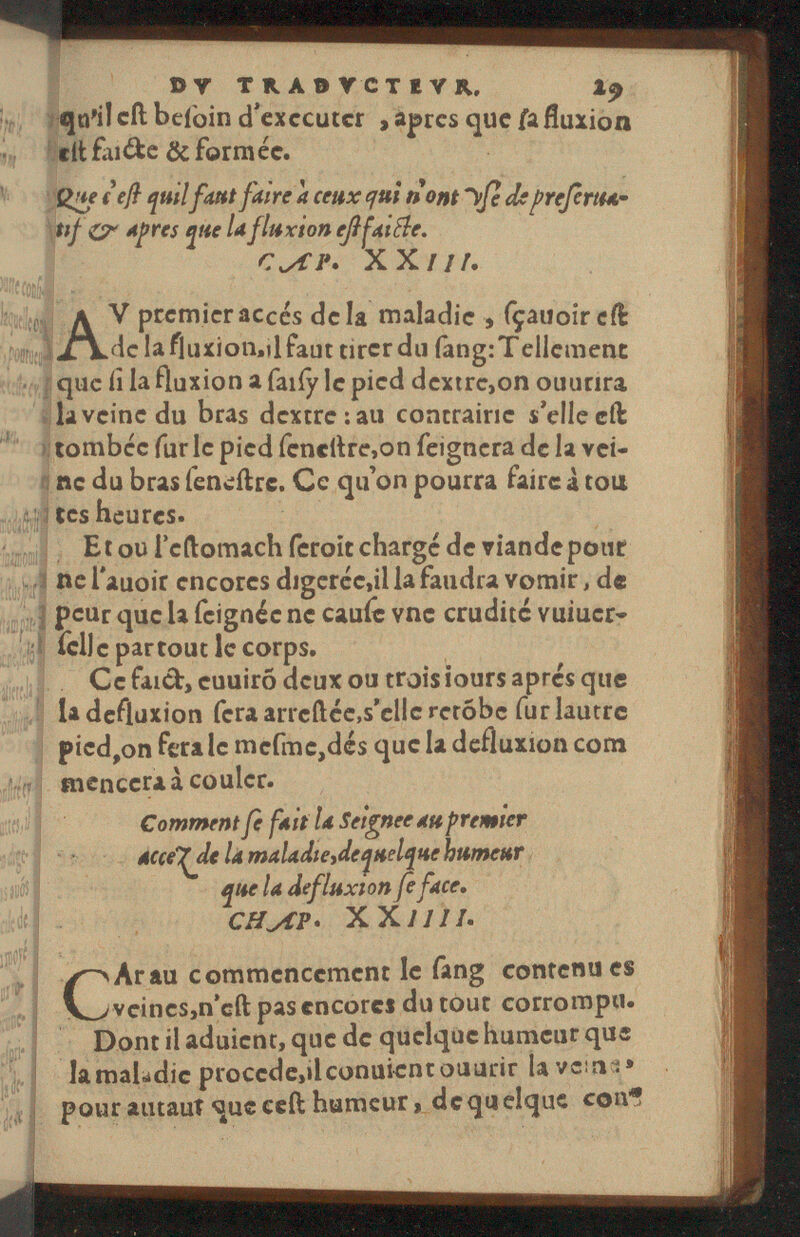 DV TRADVCTEVR. 29
qu'il eſt beſoin d'executer , apres que ſa fluxion
eſt faicte & formée.
Que c'eſt quil faut faire a ceux qui n'ont vſé de preſerua-
tif & apres que la fluxion eſt faicte.
CAP. XXIII.
AV premier accés de la maladie , ſçauoir eſt
de la fluxion, il faut tirer du ſang: Tellement
que ſi la fluxion a ſaiſy le pied dextre, on ouurira
la veine du bras dextre : au contrairie s'elle eſt
tombée ſur le pied ſeneſtre, on ſeignera de la vei-
ne du bras ſeneſtre. Ce qu'on pourra faire à tou
tes heures.
Et ou l'eſtomach ſeroit chargé de viande pour
ne l'auoir encores digerée, il la faudra vomir, de
peur que la ſeignée ne cauſe vne crudité vuiuer-
ſelle par tout le corps.
Ce faict, enuirõ deux ou trois iours aprés que
la defluxion ſera arreſtée, s'elle retõbe ſur lautre
pied, on fera le meſme, dés que la defluxion com
mencera à couler.
Comment ſe fait la Seignee au premier
accez de la maladie, de quelque humeur
que la defluxion ſe face.
CHAP. XXIIII.
CAr au commencement le ſang contenu es
veines, n'eſt pas encores du tout corrompu.
Dont il aduient, que de quelque humeur que
la maladie procede, il conuient ouurir la veine,
pour autaut que ceſt humeur, de quelque con-